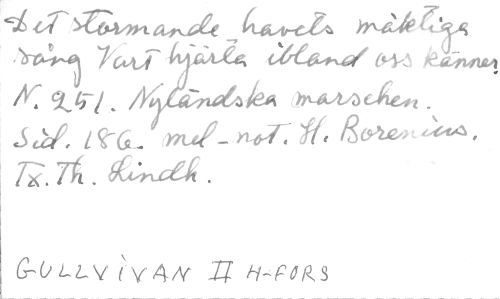 Det stormande havets mäktiga
sång Vart hjärta ibland oss känner.
N. 251. Nyländska marschen.
Sid. 186. mel-not. H. Borenius.
Tx. Th. Lindh.
GULLVIVAN II H-FORS